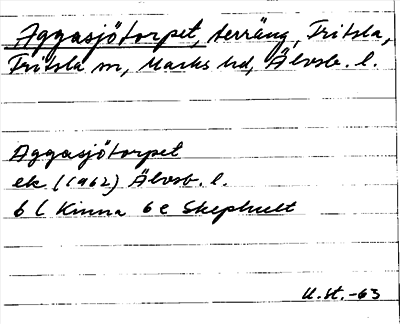 Aggasjötorpet, terräng, Fritsla,
Fritsla sn, Marks hd, Älvsb. l.
Aggasjötorpet
ek (1962) Älvsb. l.
6 C Kinna 6 e Skephult
U.St.-63